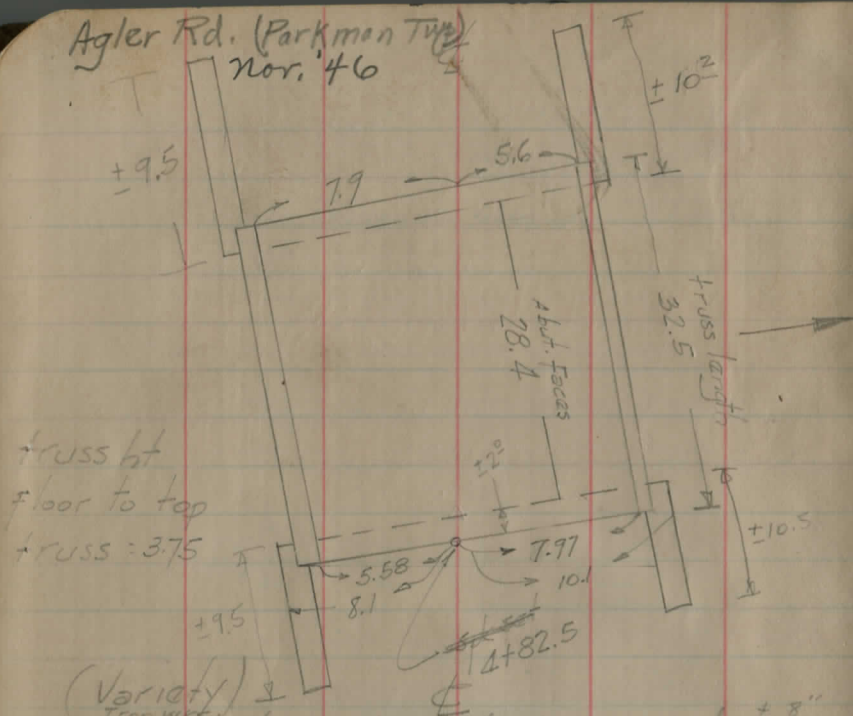 Agler Rd. (Parkman Twp)
Nov. '46
± 10²
± 9.5
7.9
5.6
Abut. Faces
28.4
truss length
32.5
truss ht
Floor to top
truss = 3.75
± 2⁰
± 10.5
5.58
7.97
8.1
10.1
± 9.5
4+82.5
(Variety)
± 8"